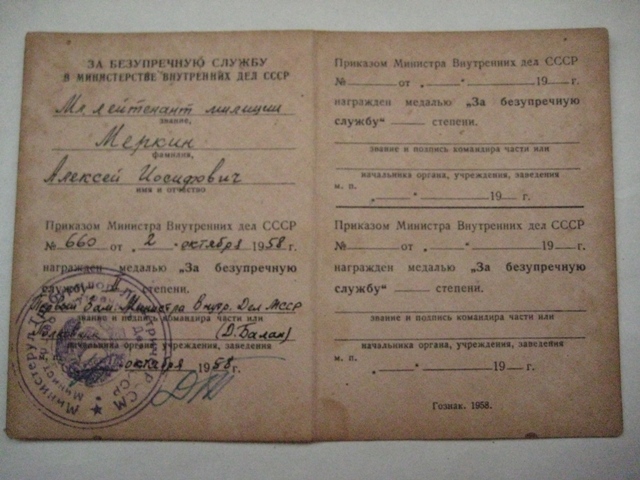 ЗА БЕЗУПРЕЧНУЮ СЛУЖБУ
В МИНИСТЕРСТВЕ ВНУТРЕННИХ ДЕЛ СССР
Мл. лейтенант милиции
звание,
Меркин
фамилия,
Алексей Иосифович
имя и отчество
Приказом Министра Внутренних дел СССР
№ 660 от „ 2 “ октября 1958 г.
награжден медалью „За безупречную
службу“ II степени.
Первый Зам. Министра Внутр. Дел МССР
звание и подпись командира части или
(Д. Балан)
начальника органа, учреждения, заведения
октября 1958 г.
Приказом Министра Внутренних дел СССР
№ от „ “ 19 г.
награжден медалью „За безупречную
службу“ степени.
звание и подпись командира части или
начальника органа, учреждения, заведения
м. п.
„ “ 19 г.
Приказом Министра Внутренних дел СССР
№ от „ “ 19 г.
награжден медалью „За безупречную
службу“ степени.
звание и подпись командира части или
начальника органа, учреждения, заведения
м. п.
„ “ 19 г.
Гознак. 1958.